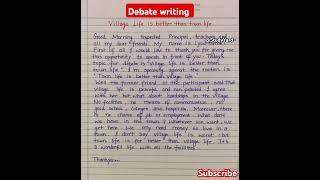 Debate writing
Village Life is better than town life.
Good Morning Respected Principal, teachers and
all my dear friends. My name is
First of all I would like to thank you for giving me
this opportunity to speak in front of you. Today's
topic for debate is "Village life is better than town
life". I'm speaking against the motion i.e
"Town life is better than village life".
Well the former friend or the participant said that
village life is peaceful and non polluted I agree
with her but what about hardships in the village.
No facilities, no means of communication, no
good school, colleges and hospitals. Moreover there
is no chance of job or employment. What don't
we have in the town? Whatever we want, we
get here. We only need money to live in a
town. I don't say village life is worst but
town life is far better than village life. It's
a wonderful life with all the facilities.
Thankyou
Subscribe